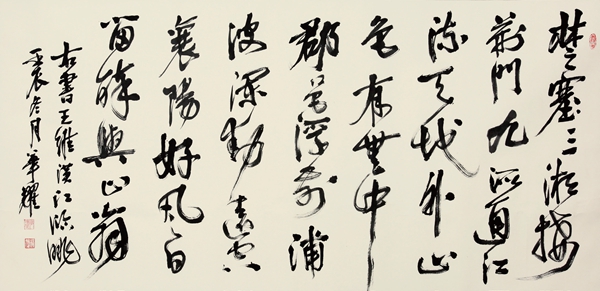 楚塞三湘接
荊門九派通江
流天地外山
色有無中
郡邑浮前浦
波瀾動遠空
襄陽好風日
留醉與山翁
右書王維漢江臨眺
壬辰冬月章耀